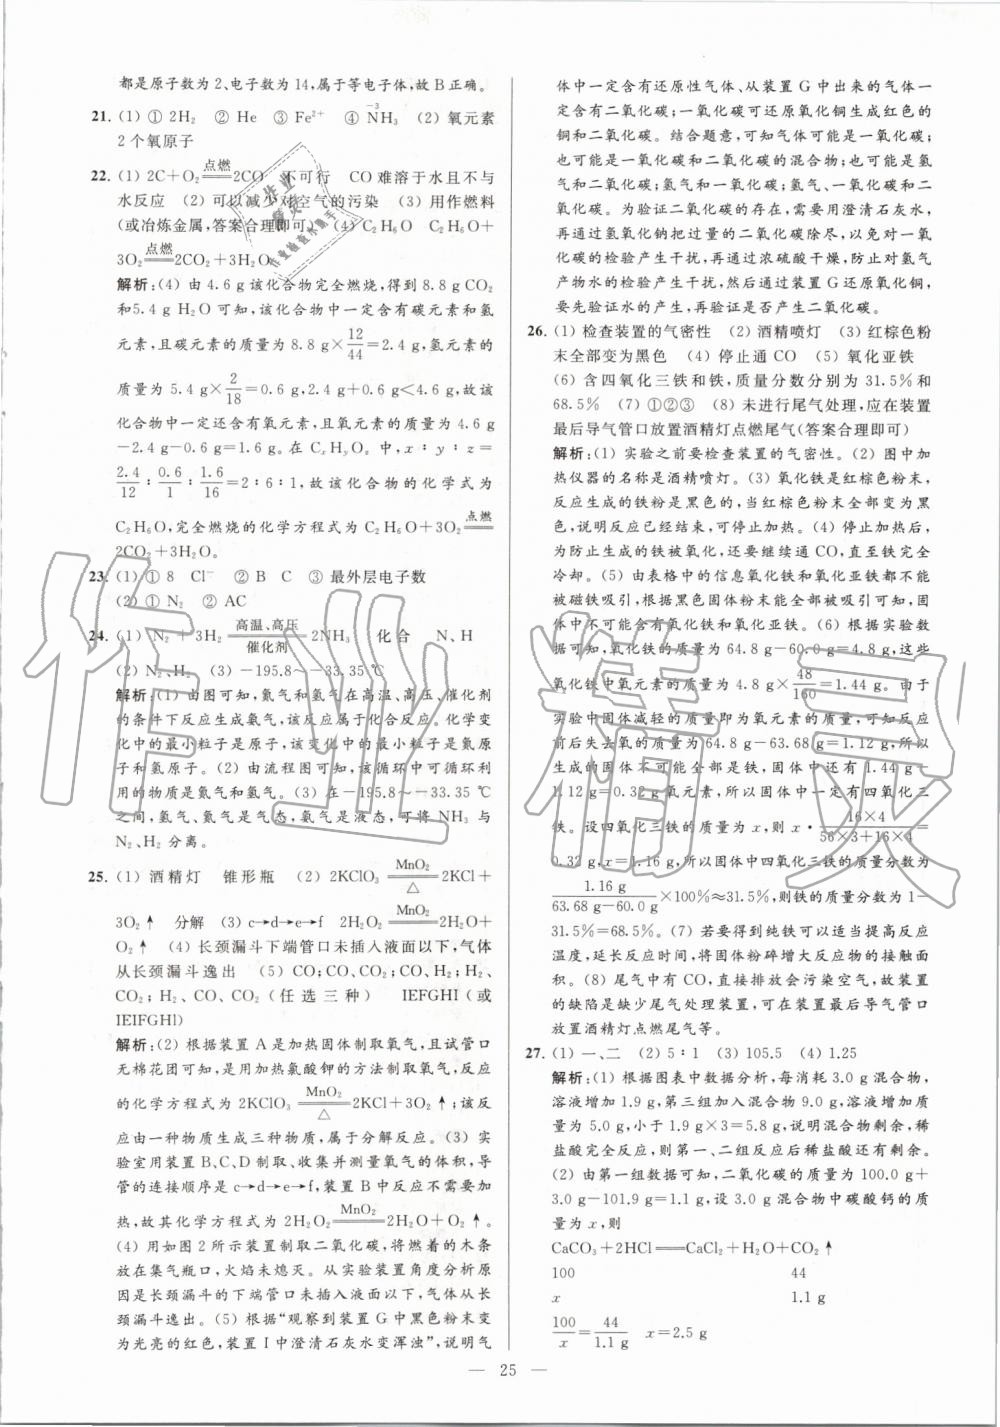 都是原子数为2、电子数为14,属于等电子体,故B正确。
21. (1) ① 2H₂ ② He ③ Fe²⁺ ④ N⁻³H₃ (2) 氧元素
2个氧原子
22. (1) 2C+O₂ 点燃══ 2CO 不可行 CO难溶于水且不与
水反应 (2) 可以减少对空气的污染 (3) 用作燃料
(或冶炼金属,答案合理即可) (4) C₂H₆O C₂H₆O+
3O₂ 点燃══ 2CO₂+3H₂O
解析:(4) 由4.6 g该化合物完全燃烧,得到8.8 g CO₂
和5.4 g H₂O可知,该化合物中一定含有碳元素和氢
元素,且碳元素的质量为8.8 g×12/44=2.4 g,氢元素的
质量为5.4 g×2/18=0.6 g,2.4 g+0.6 g<4.6 g,故该
化合物中一定还含有氧元素,且氧元素的质量为4.6 g
-2.4 g-0.6 g=1.6 g。在CₓHᵧO_z中,x∶y∶z=
2.4/12∶0.6/1∶1.6/16=2∶6∶1,故该化合物的化学式为
C₂H₆O,完全燃烧的化学方程式为C₂H₆O+3O₂ 点燃══
2CO₂+3H₂O。
23. (1) ① 8 Cl⁻ ② B C ③ 最外层电子数
(2) ① N₂ ② AC
24. (1) N₂+3H₂ 高温、高压══催化剂 2NH₃ 化合 N、H
(2) N₂、H₂ (3) -195.8~-33.35 ℃
解析:(1) 由图可知,氮气和氢气在高温、高压、催化剂
的条件下反应生成氨气,该反应属于化合反应。化学变
化中的最小粒子是原子,该变化中的最小粒子是氮原
子和氢原子。(2) 由流程图可知,该循环中可循环利
用的物质是氮气和氢气。(3) 在-195.8~-33.35 ℃
之间,氮气、氢气是气态,氨气是液态,可将NH₃与
N₂、H₂分离。
25. (1) 酒精灯 锥形瓶 (2) 2KClO₃ MnO₂══△ 2KCl+
3O₂↑ 分解 (3) c→d→e→f 2H₂O₂ MnO₂══ 2H₂O+
O₂↑ (4) 长颈漏斗下端管口未插入液面以下,气体
从长颈漏斗逸出 (5) CO;CO、CO₂;CO、H₂;H₂、
CO₂;H₂、CO、CO₂(任选三种) IEFGHI(或
IEIFGHI)
解析:(2) 根据装置A是加热固体制取氧气,且试管口
无棉花团可知,是用加热氯酸钾的方法制取氧气,反应
的化学方程式为2KClO₃ MnO₂══△ 2KCl+3O₂↑;该反
应由一种物质生成三种物质,属于分解反应。(3) 实
验室用装置B、C、D制取、收集并测量氧气的体积,导
管的连接顺序是c→d→e→f,装置B中反应不需要加
热,故其化学方程式为2H₂O₂ MnO₂══ 2H₂O+O₂↑。
(4) 用如图2所示装置制取二氧化碳,将燃着的木条
放在集气瓶口,火焰未熄灭。从实验装置角度分析原
因是长颈漏斗的下端管口未插入液面以下,气体从长
颈漏斗逸出。(5) 根据“观察到装置G中黑色粉末变
为光亮的红色,装置I中澄清石灰水变浑浊”,说明气
体中一定含有还原性气体、从装置G中出来的气体一
定含有二氧化碳;一氧化碳可还原氧化铜生成红色的
铜和二氧化碳。结合题意,可知气体可能是一氧化
碳;一氧化碳和二氧化碳的混合物;也可能是氢气
和二氧化碳;氢气和一氧化碳;氢气、一氧化碳和二氧
化碳。为验证二氧化碳的存在,需要用澄清石灰水,
再用氢氧化钠把过量的二氧化碳除尽,以免对一氧
化碳的检验产生干扰,再通过浓硫酸干燥,防止对氢气
产物水的检验产生干扰,然后通过装置G还原氧化铜,
要先验证水的产生,再验证是否产生二氧化碳。
26. (1) 检查装置的气密性 (2) 酒精喷灯 (3) 红棕色粉
末全部变为黑色 (4) 停止通CO (5) 氧化亚铁
(6) 含四氧化三铁和铁,质量分数分别为31.5%和
68.5% (7) ①②③ (8) 未进行尾气处理,应在装置
最后导气管口放置酒精灯点燃尾气(答案合理即可)
解析:(1) 实验之前要检查装置的气密性。(2) 图中加
热仪器的名称是酒精喷灯。(3) 氧化铁是红棕色粉末,
反应生成的铁粉是黑色的,当红棕色粉末全部变为黑
色,说明反应已经结束,可停止加热。(4) 停止加热后,
为防止生成的铁被氧化,还要继续通CO,直至铁完全
冷却。(5) 由表格中的信息氧化铁和氧化亚铁都不能
被磁铁吸引,根据黑色固体粉末能全部被吸引,故固
体中不可能含有氧化铁和氧化亚铁。(6) 根据实验数
据可知,氧化铁的质量为64.8 g-60.0 g=4.8 g,这些
氧化铁中氧元素的质量为4.8 g×48/160=1.44 g。由于
实验中固体减轻的质量即为氧元素的质量,可知反应
前后失去氧的质量为64.8 g-63.68 g=1.12 g,所以
生成的固体不可能全部是铁,固体中还有1.44 g-
1.12 g=0.32 g氧元素,所以固体中一定有四氧化三
铁。设四氧化三铁的质量为x,则x·16×4/(56×3+16×4)=
0.32 g,x=1.16 g,所以固体中四氧化三铁的质量分数为
1.16 g/(63.68 g-60.0 g)×100%≈31.5%,则铁的质量分数为1-
31.5%=68.5%。(7) 若要得到纯铁可以适当提高反应
温度,延长反应时间,将固体粉碎增大反应物的接触面
积。(8) 尾气中有CO,直接排放会污染空气,故装置
的缺陷是缺少尾气处理装置,可在装置最后导气管口
放置酒精灯点燃尾气等。
27. (1) 一、二 (2) 5∶1 (3) 105.5 (4) 1.25
解析:(1) 根据图表中数据分析,每消耗3.0 g混合物,
溶液增加1.9 g,第三组加入混合物9.0 g,溶液增加
5.0 g,小于1.9 g×3=5.8 g,说明混合物剩余,稀
盐酸完全反应,则第一、二组反应后稀盐酸还有剩余。
(2) 由第一组数据可知,二氧化碳的质量为100.0 g+
3.0 g-101.9 g=1.1 g,设3.0 g混合物中碳酸钙的质
量为x,则
CaCO₃+2HCl══CaCl₂+H₂O+CO₂↑
100 44
x 1.1 g
100/x=44/1.1 g x=2.5 g
— 25 —
作业精灵